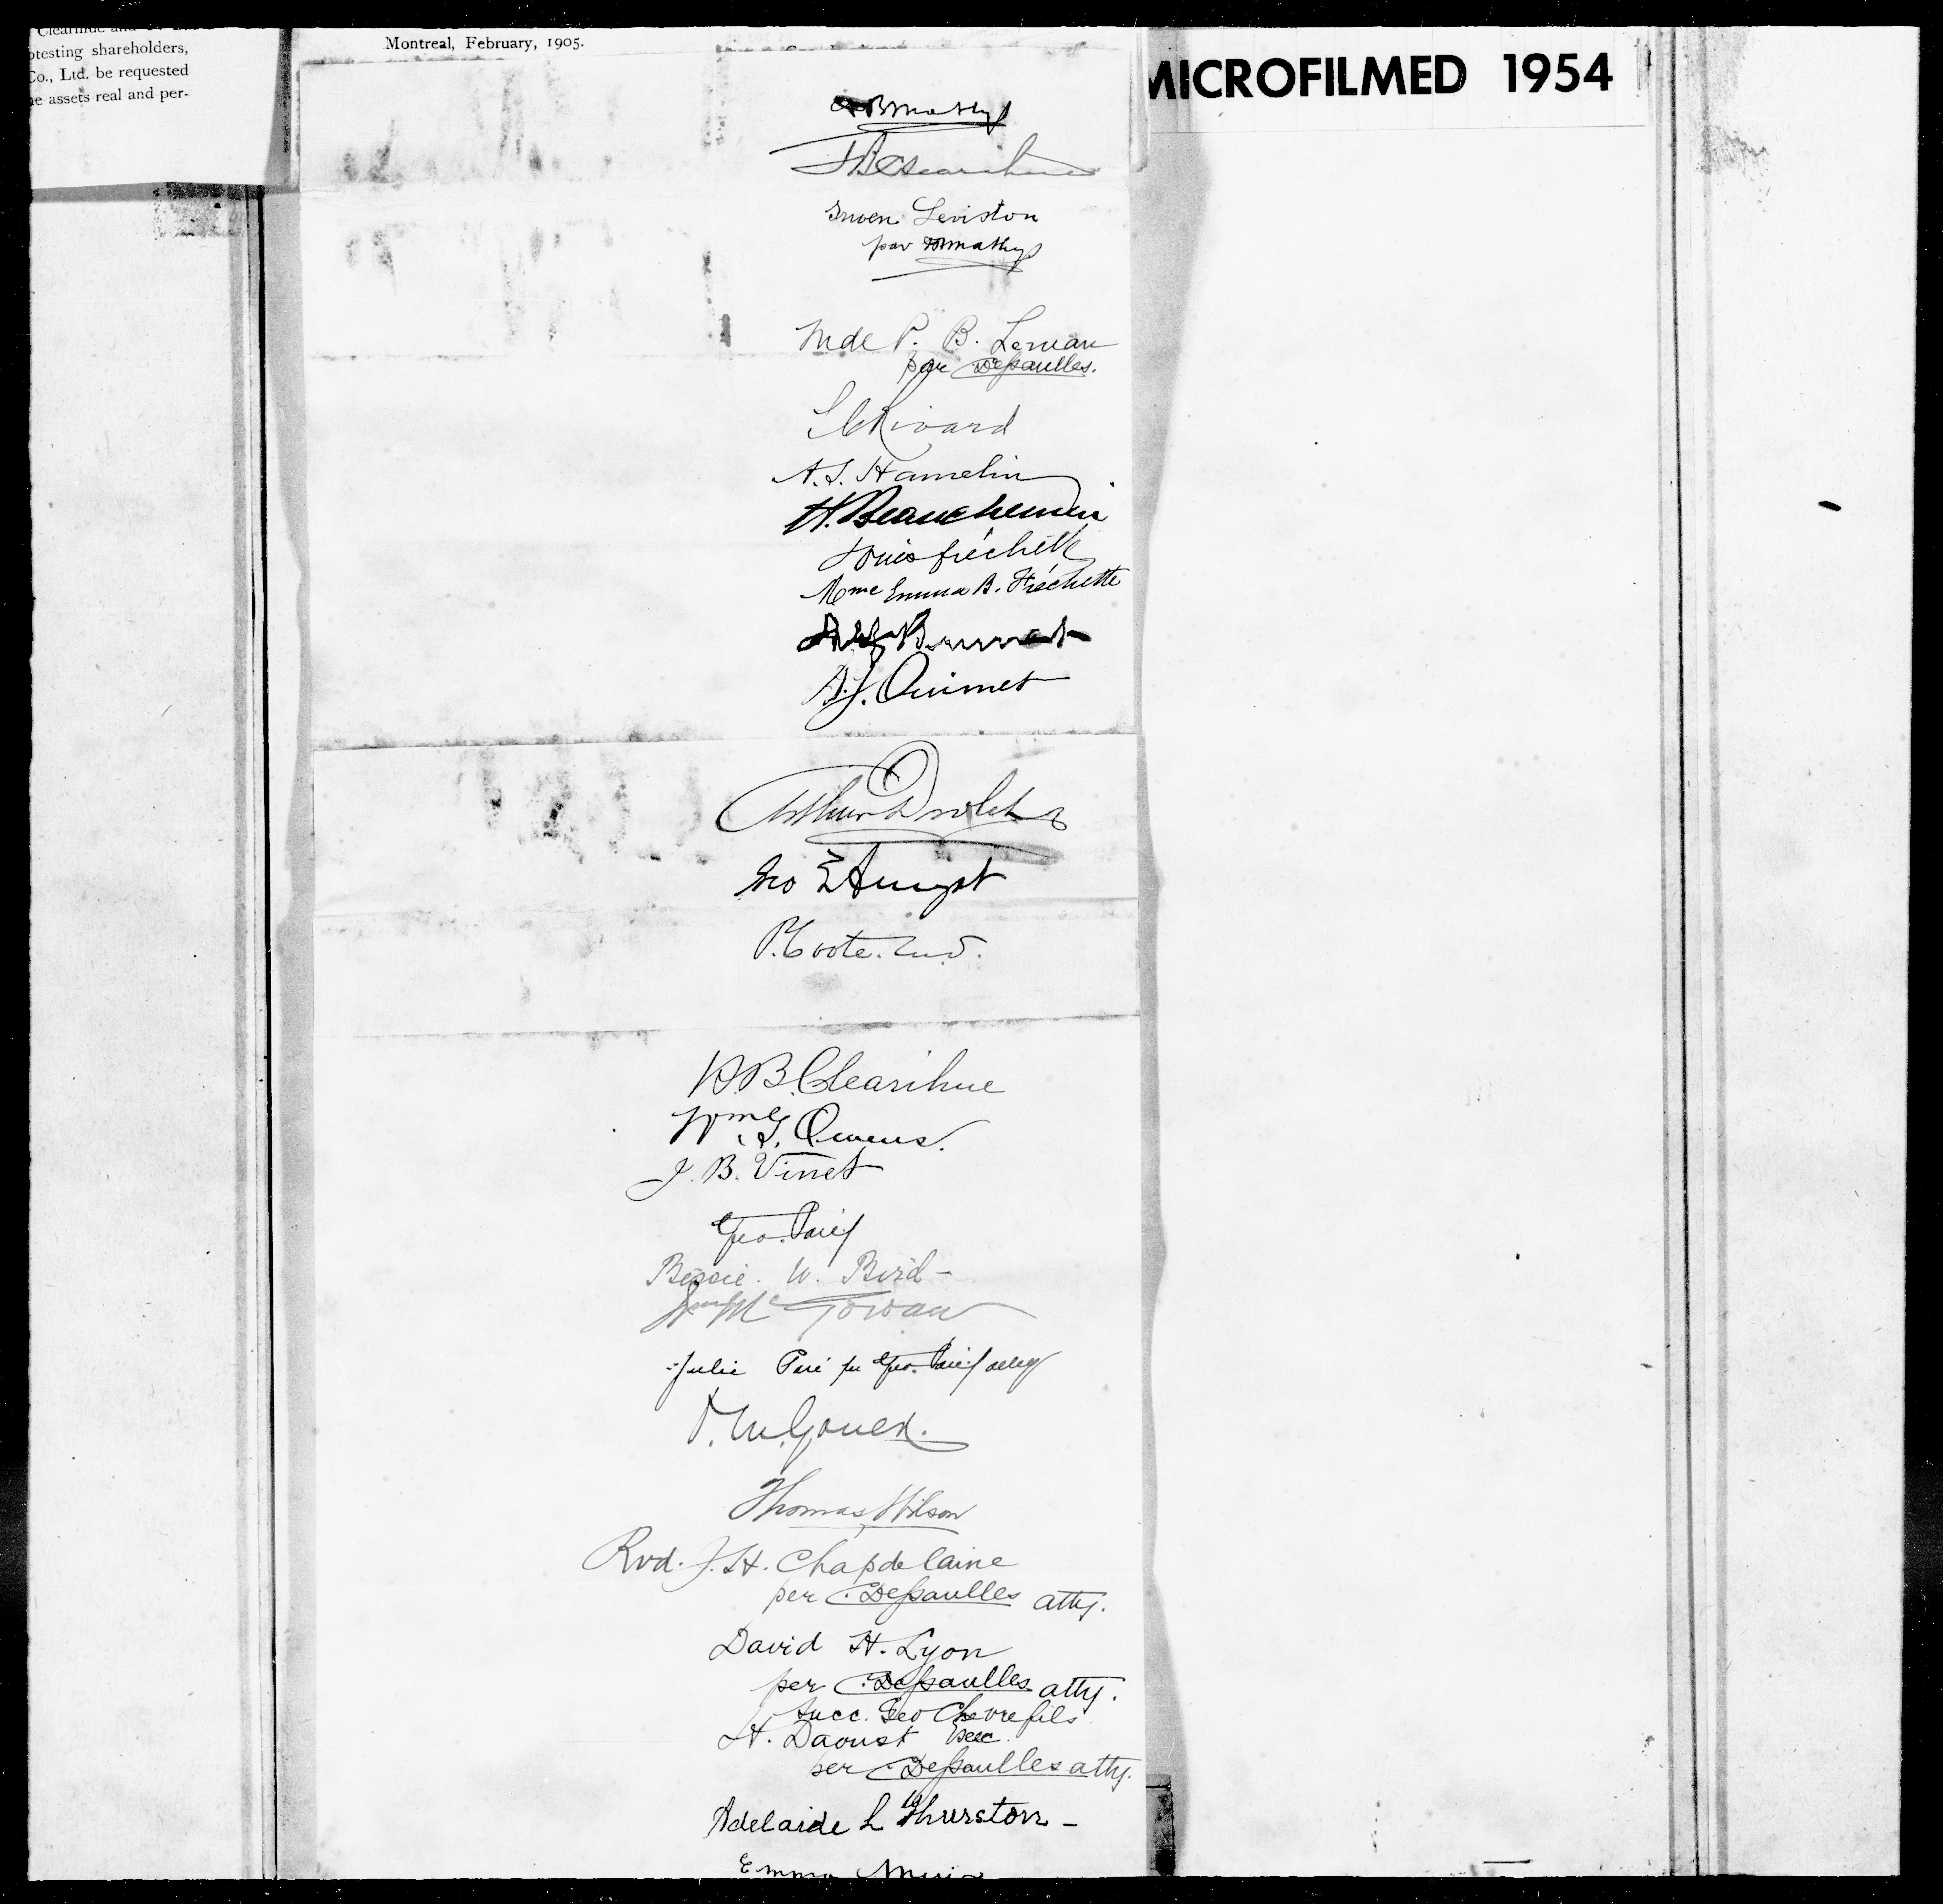 otesting shareholders,
Co., Ltd. be requested
e assets real and per-
Montreal, February, 1905.
MICROFILMED 1954
Leviston
par
Mde P. B.
par Dessaulles.
Rivard
A. S. Hamelin
H. Beauchemin
Louis Fréchette
Mme Emma B. Fréchette
Ouimet
Arthur Drolet
Geo E Amyot
P. Coote. M.D.
B. Clearihue
Wm S. Owens.
J. B. Vinet
Geo. Paré
Bessie. W. Bird -
McGowan
Julie Paré per Geo. Paré
Thomas Wilson
Rvd. J. H. Chapdelaine
per Dessaulles atty.
David H. Lyon
per Dessaulles atty.
Succ. Geo Chevrefils
H. Daoust Exec.
per Dessaulles atty.
Adelaide L Thurston -
Emma